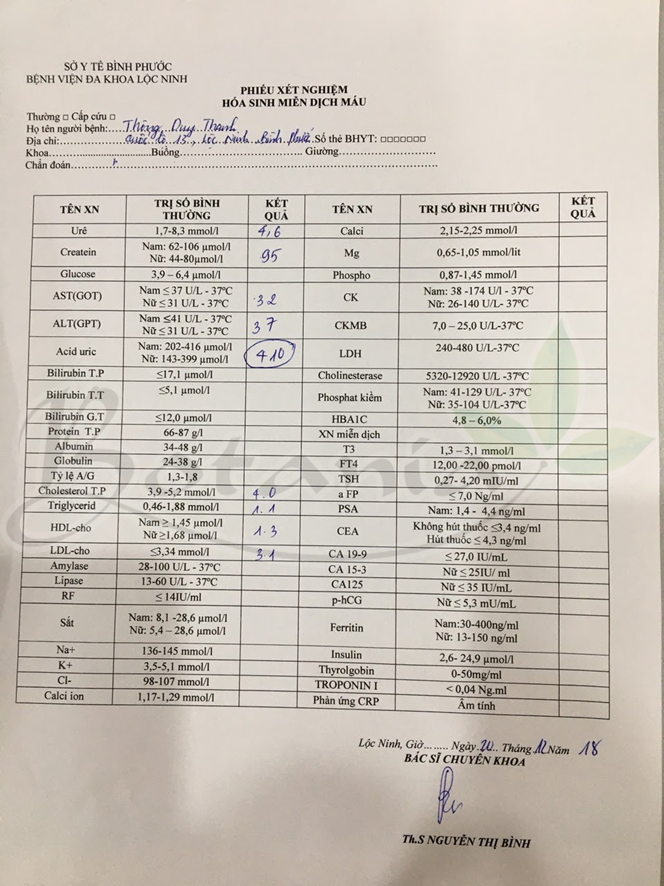 SỞ Y TẾ BÌNH PHƯỚC
BỆNH VIỆN ĐA KHOA LỘC NINH
PHIẾU XÉT NGHIỆM
HÓA SINH MIỄN DỊCH MÁU
Thường □ Cấp cứu □
Họ tên người bệnh:.... Duy Thanh
Địa chỉ:.................. Quốc lộ 13, Lộc Ninh Bình Phước Số thẻ BHYT: □□□□□□□
Khoa..............................Buồng..............................Giường..........................
Chẩn đoán..........
TÊN XN TRỊ SỐ BÌNH THƯỜNG KẾT QUẢ TÊN XN TRỊ SỐ BÌNH THƯỜNG KẾT QUẢ
Urê 1,7-8,3 mmol/l 4,6 Calci 2,15-2,25 mmol/l
Createin Nam: 62-106 µmol/l Nữ: 44-80µmol/l 95 Mg 0,65-1,05 mmol/lit
Glucose 3,9 – 6,4 µmol/l Phospho 0,87-1,45 mmol/l
AST(GOT) Nam ≤ 37 U/L - 37ºC Nữ ≤ 31 U/L - 37ºC 32 CK Nam: 38 -174 U/l - 37ºC Nữ: 26-140 U/L- 37ºC
ALT(GPT) Nam ≤41 U/L - 37ºC Nữ ≤ 31 U/L - 37ºC 37 CKMB 7,0 – 25,0 U/L-37ºC
Acid uric Nam: 202-416 µmol/l Nữ: 143-399 µmol/l 410 LDH 240-480 U/L-37ºC
Bilirubin T.P ≤17,1 µmol/l Cholinesterase 5320-12920 U/L -37ºC
Bilirubin T.T ≤5,1 µmol/l Phosphat kiềm Nam: 41-129 U/L- 37ºC Nữ: 35-104 U/L-37ºC
Bilirubin G.T ≤12,0 µmol/l HBA1C 4,8 – 6,0%
Protein T.P 66-87 g/l XN miễn dịch
Albumin 34-48 g/l T3 1,3 – 3,1 mmol/l
Globulin 24-38 g/l FT4 12,00 -22,00 pmol/l
Tỷ lệ A/G 1,3-1,8 TSH 0,27- 4,20 mIU/ml
Cholesterol T.P 3,9 -5,2 mmol/l 4.0 a FP ≤ 7,0 Ng/ml
Triglycerid 0,46-1,88 mmol/l 1.1 PSA Nam: 1,4 - 4,4 ng/ml
HDL-cho Nam ≥ 1,45 µmol/l Nữ ≥1,68 µmol/l 1.3 CEA Không hút thuốc ≤3,4 ng/ml Hút thuốc ≤ 4,3 ng/ml
LDL-cho ≤3,34 mmol/l 3.1 CA 19-9 ≤ 27,0 IU/mL
Amylase 28-100 U/L - 37ºC CA 15-3 Nữ ≤ 25IU/ ml
Lipase 13-60 U/L - 37ºC CA125 Nữ ≤ 35 IU/mL
RF ≤ 14IU/ml p-hCG Nữ ≤ 5,3 mU/mL
Sắt Nam: 8,1 -28,6 µmol/l Nữ: 5,4 – 28,6 µmol/l Ferritin Nam:30-400ng/ml Nữ: 13-150 ng/ml
Na+ 136-145 mmol/l Insulin 2,6- 24,9 µmol/l
K+ 3,5-5,1 mmol/l Thyrolgobin 0-50mg/ml
Cl- 98-107 mmol/l TROPONIN I < 0,04 Ng.ml
Calci ion 1,17-1,29 mmol/l Phản ứng CRP Âm tính
Botanic
Lộc Ninh, Giờ........ Ngày.20.. Tháng 12 Năm 18
BÁC SĨ CHUYÊN KHOA
Th.S NGUYỄN THỊ BÌNH